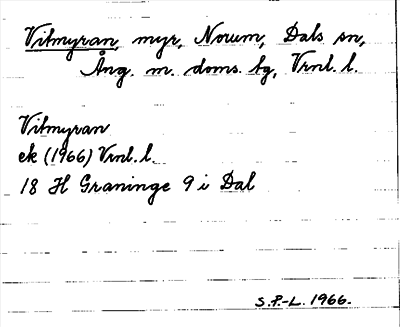 Vitmyran, myr, Norum, Dals sn,
Ång. m. doms. bg, Vrnl. l.
Vitmyran
ek (1966) Vrnl. l.
18 H Graninge 9 i Dal
S.P.-L. 1966.